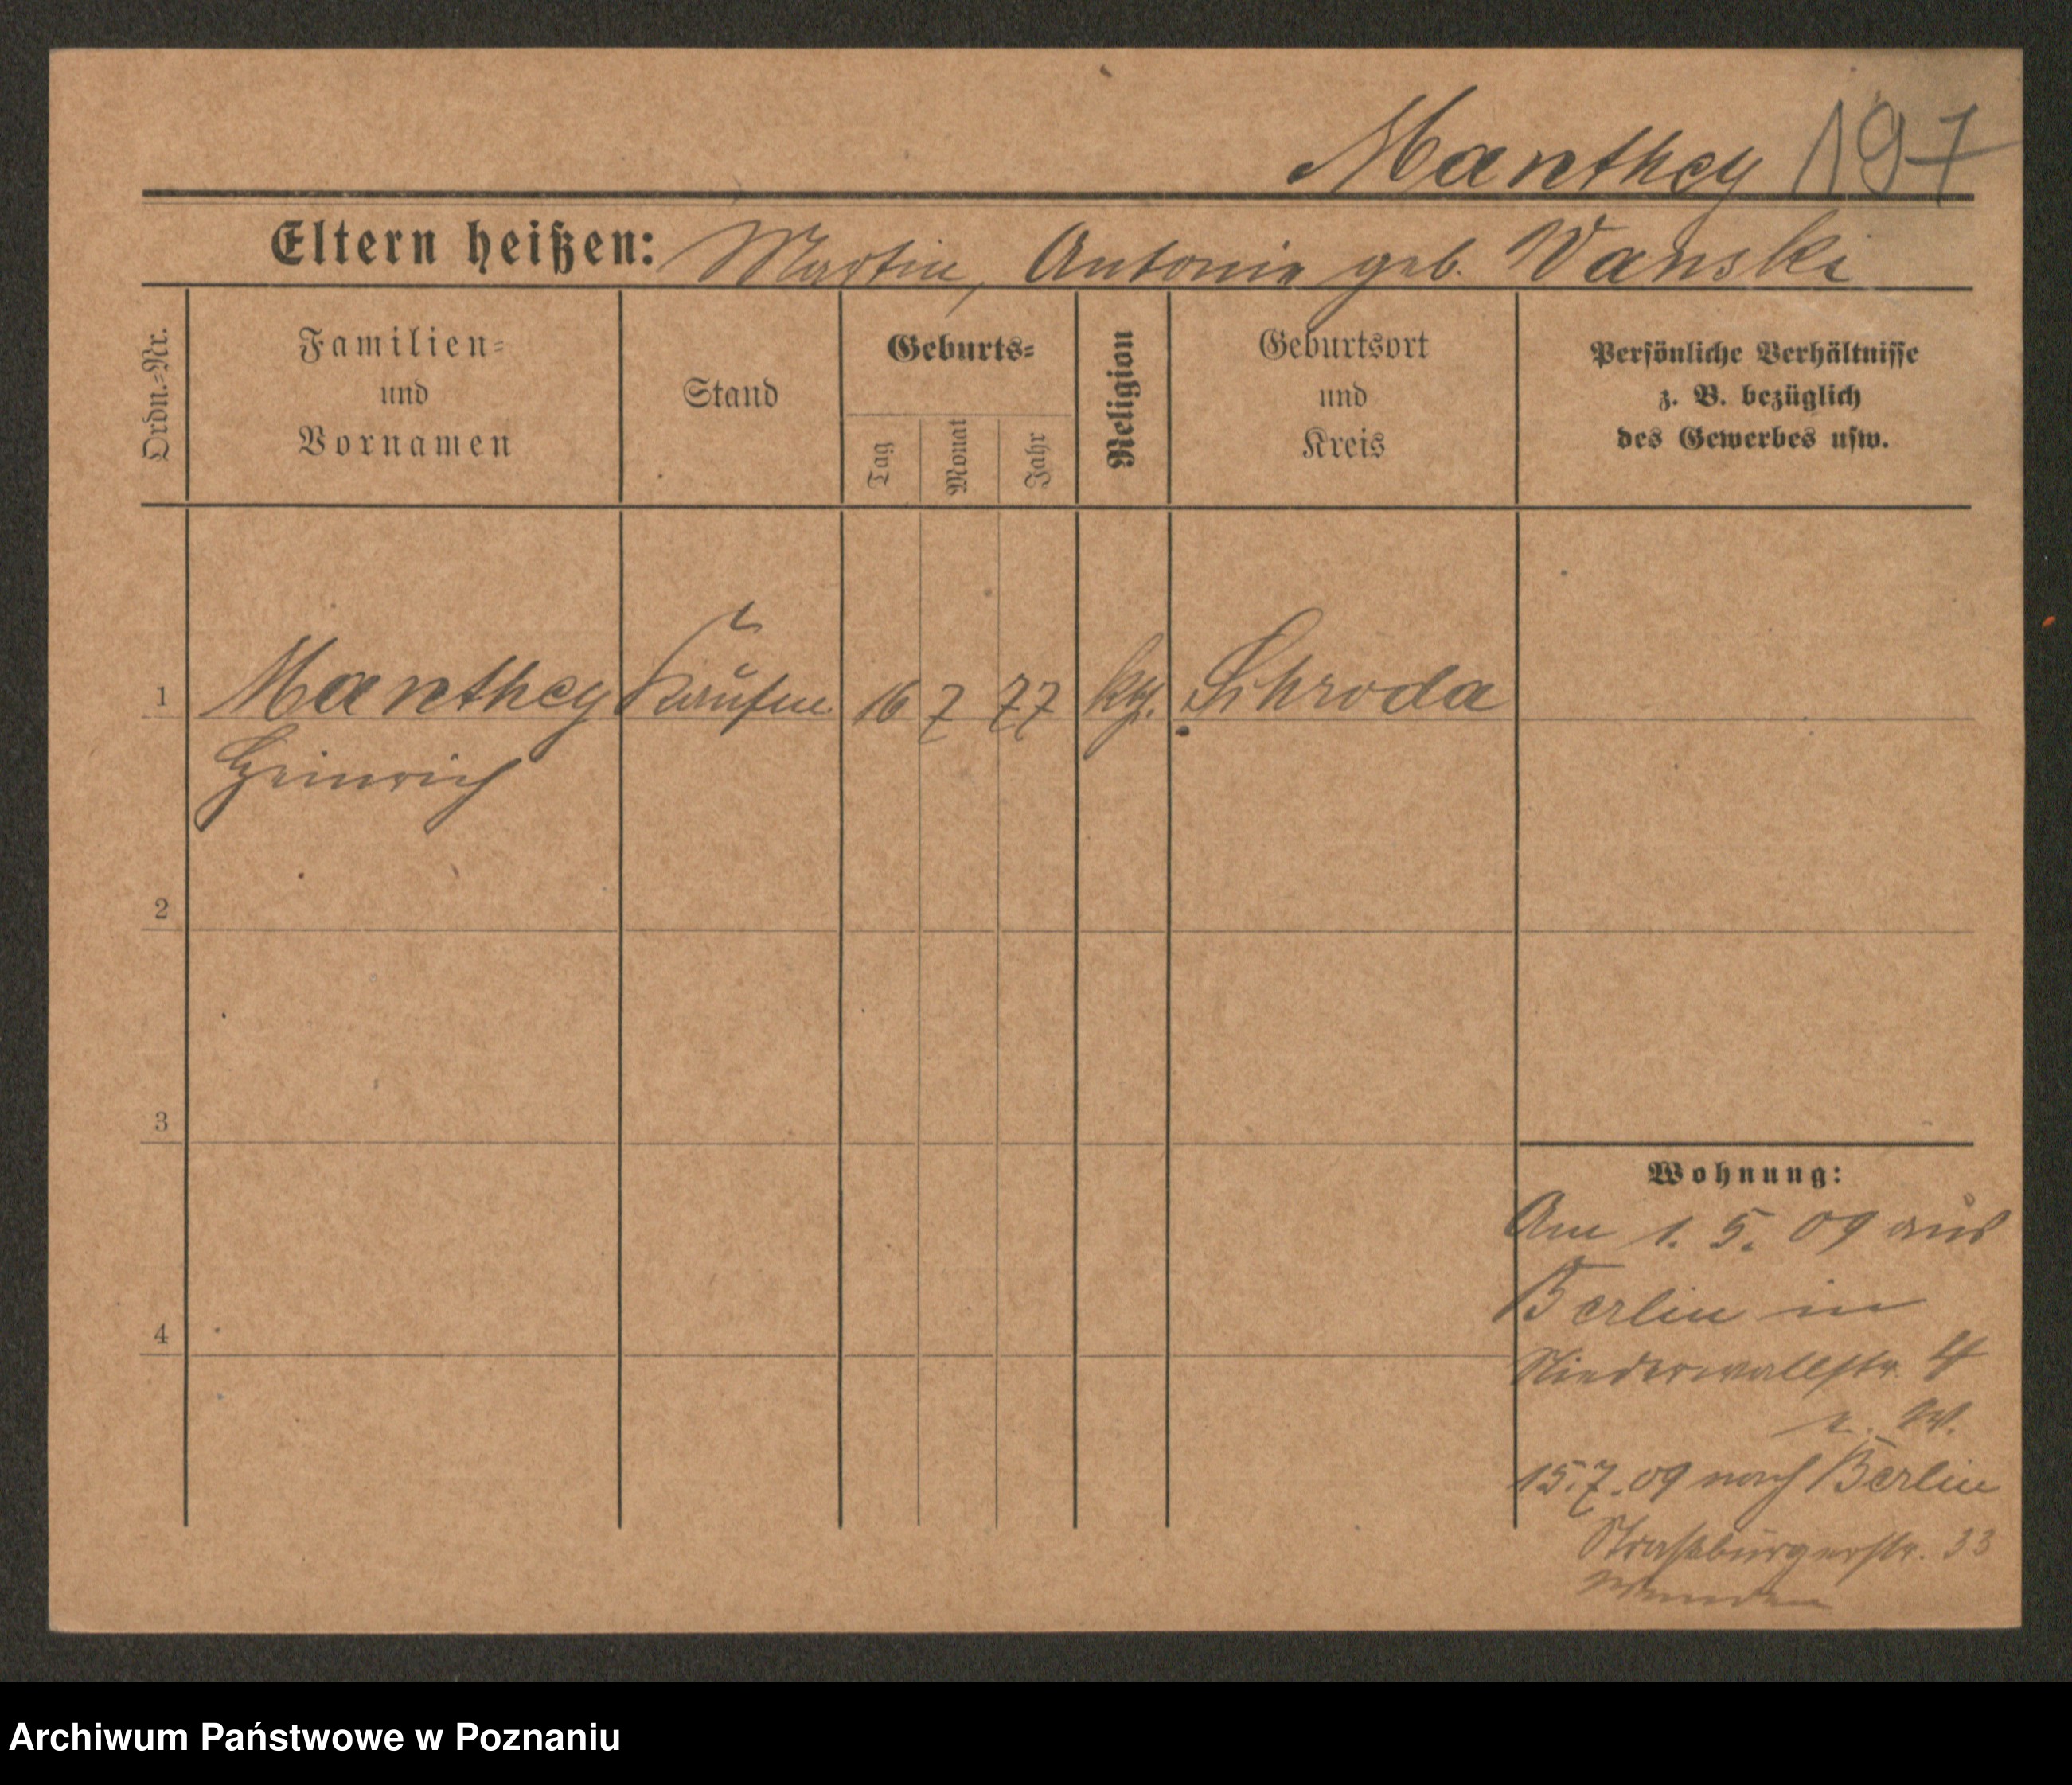 Manthey 197
Eltern heißen: Martin, Antonie geb. Wanski
Ordn.=Nr.
Familien=
und
Vornamen
Stand
Geburts=
Tag
Monat
Jahr
Religion
Geburtsort
und
Kreis
Persönliche Verhältnisse
z. B. bezüglich
des Gewerbes usw.
1 Manthey 16 7 77 Schroda
Heinrich
2
3
4
Wohnung:
Am 1. 5. 09 aus
Berlin in
Niederwallstr. 4
15.7.09 nach Berlin
Strassburgerstr. 33
Archiwum Państwowe w Poznaniu